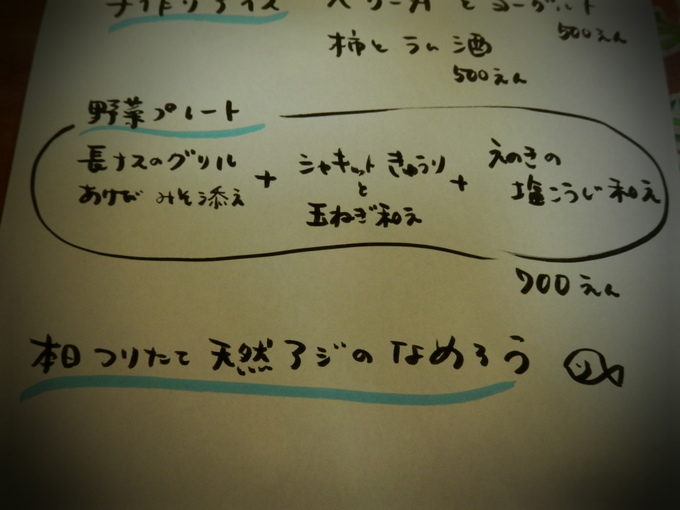 手作りアイス
と ヨーグルト
500えん
柿と ラム酒
500えん
野菜プレート
長ナスのグリル
あけび みそ添え
+
シャキット きゅうり
と
玉ねぎ和え
+
えのきの
塩こうじ和え
700えん
本日つりたて 天然アジの なめろう